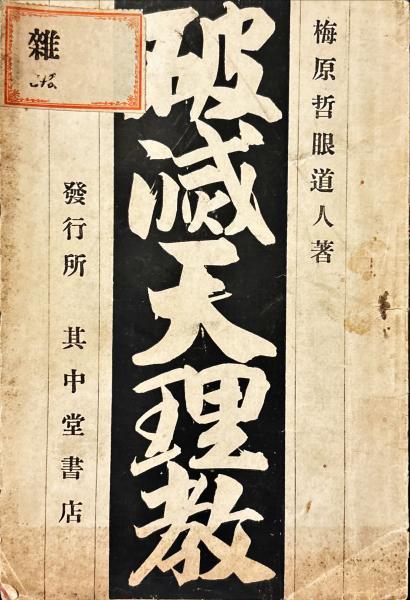 梅原哲眼道人著
破滅天理教
發行所 其中堂書店
雜